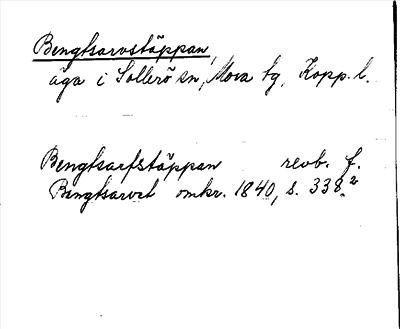 Bengtsarvstäppan,
äga i Sollerö sn, Mora tg, Kopp. l.
Bengtsarfstäppan revb. f.
Bengtsarvet omkr. 1840, s. 338.2